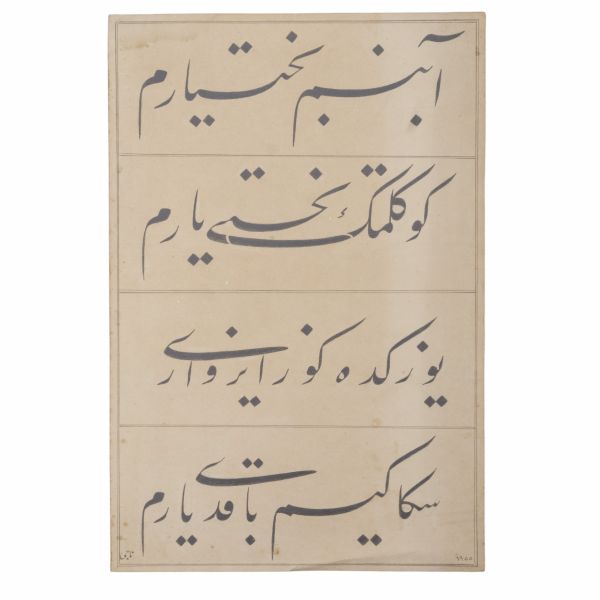 آ بنم بختیارم
کوکلمک تختی یارم
یوزکده کوز ایزی وار
سکا کیم باقدی یارم
١٩٥٥